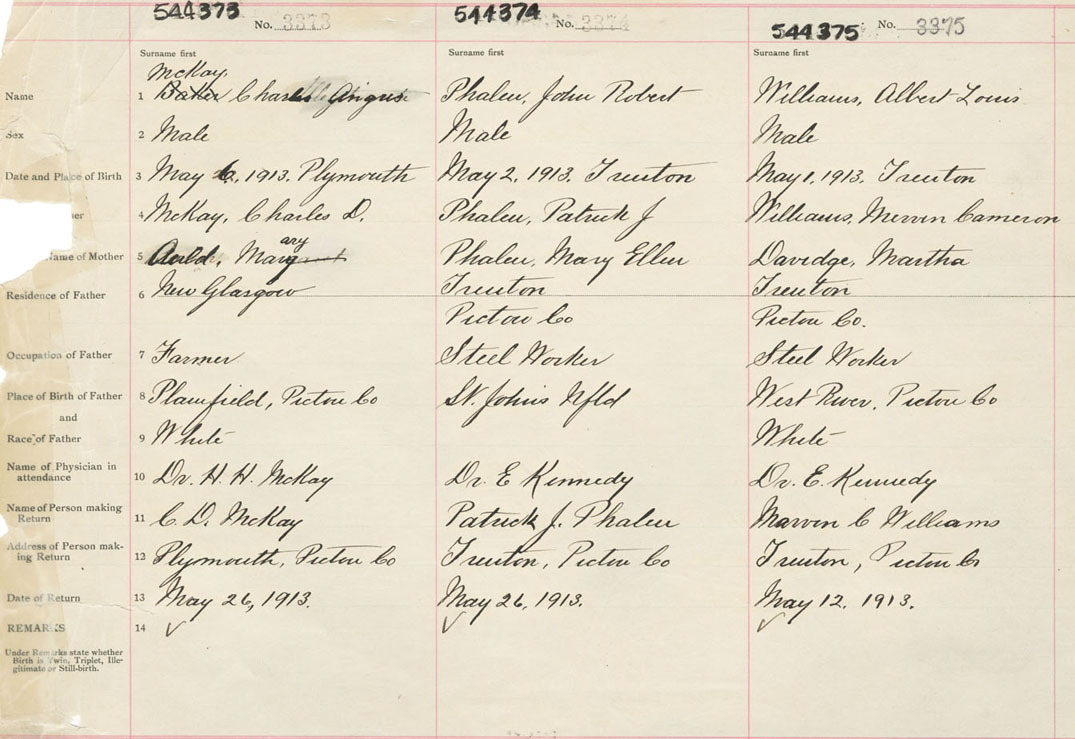 544373 No. 3373 544374 No. 3374 544375 No. 3375
Surname first Surname first Surname first
McKay,
Name 1 Baker Charles Angus Phalen, John Robert Williams, Albert Louis
Sex 2 Male Male Male
Date and Place of Birth 3 May 6, 1913. Plymouth May 2, 1913. Trenton May 1, 1913. Trenton
er 4 McKay, Charles D. Phalen, Patrick J Williams, Mervin Cameron
ary
Name of Mother 5 Auld, Mary Phalen, Mary Ellen Davidge, Martha
Residence of Father 6 New Glasgow Trenton Trenton
Pictou Co Pictou Co.
Occupation of Father 7 Farmer Steel Worker Steel Worker
Place of Birth of Father 8 Plainfield, Pictou Co St. Johns Nfld West River, Pictou Co
and
Race of Father 9 White White
Name of Physician in
attendance 10 Dr. H. H. McKay Dr. E Kennedy Dr. E. Kennedy
Name of Person making
Return 11 C. D. McKay Patrick J. Phalen Marven C Williams
Address of Person mak-
ing Return 12 Plymouth, Pictou Co Trenton, Pictou Co Trenton, Pictou Co
Date of Return 13 May 26, 1913. May 26, 1913. May 12, 1913.
REMARKS 14
Under Remarks state whether
Birth is Twin, Triplet, Ille-
gitimate or Still-birth.